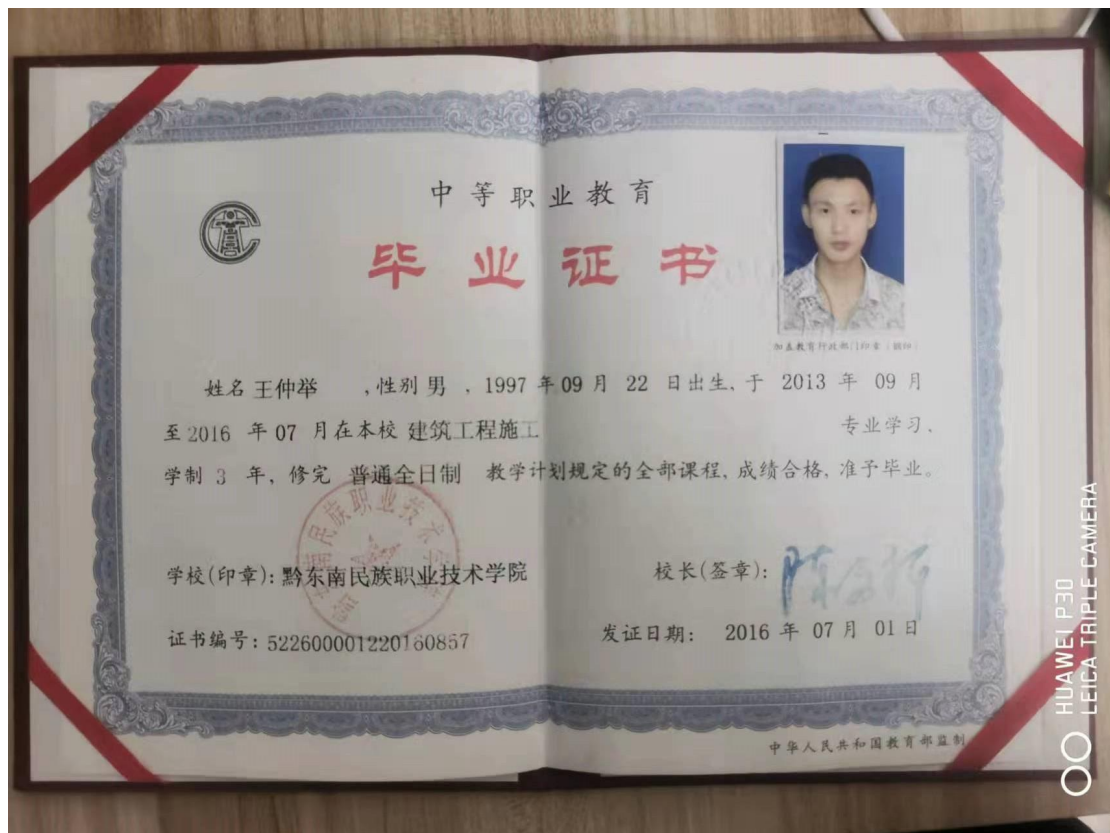 中等职业教育
毕业证书
加盖教育行政部门印章（钢印）
姓名 王仲举 ，性别 男 ，1997 年 09 月 22 日出生、于 2013 年 09 月
至 2016 年 07 月在本校 建筑工程施工 专业学习、
学制 3 年，修完 普通全日制 教学计划规定的全部课程、成绩合格，准予毕业。
学校(印章)：黔东南民族职业技术学院
校长(签章)：
证书编号：522600001220160857
发证日期： 2016 年 07 月 01 日
中华人民共和国教育部监制
HUAWEI P30
LEICA TRIPLE CAMERA